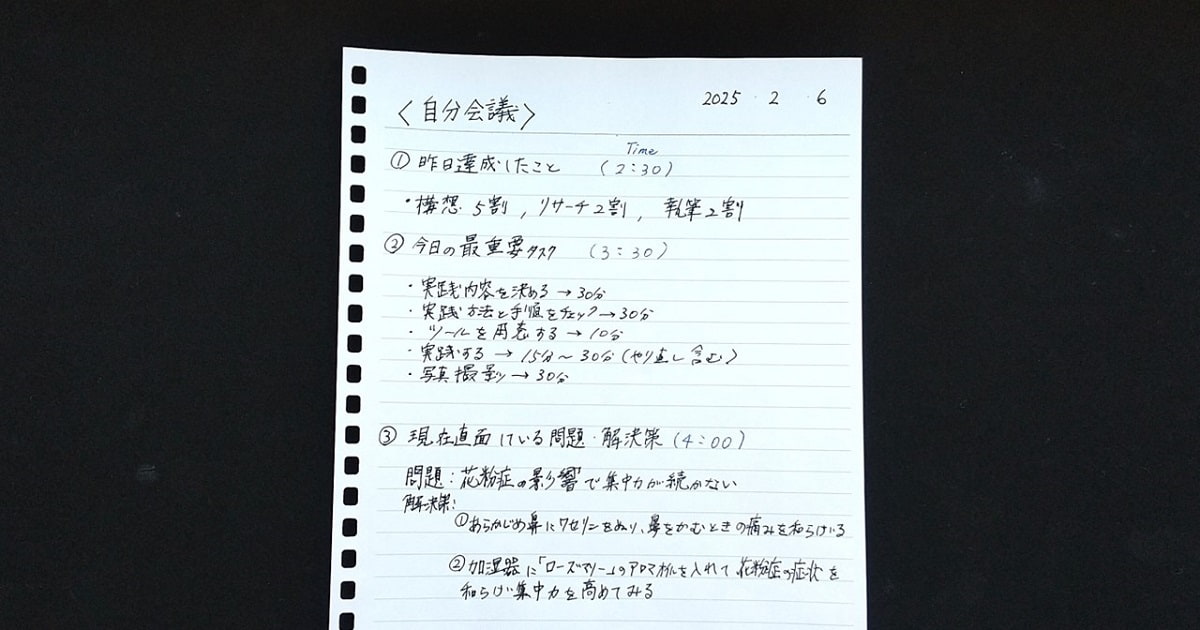 2025 2 6
〈自分会議〉
Time
① 昨日達成したこと (2:30)
・構想 5割, リサーチ2割, 執筆2割
② 今日の最重要タスク (3:30)
・実践内容を決める → 30分
・実践方法と手順をチェック → 30分
・ツールを用意する → 10分
・実践する → 15分〜30分(やり直し含む)
・写真撮影 → 30分
③ 現在直面している問題・解決策 (4:00)
問題:花粉症の影響で集中力が続かない
解決策:
①あらかじめ鼻にワセリンをぬり、鼻をかむときの痛みを和らげる
②加湿器に「ローズマリー」のアロマオイルを入れて花粉症の症状を
和らげ集中力を高めてみる